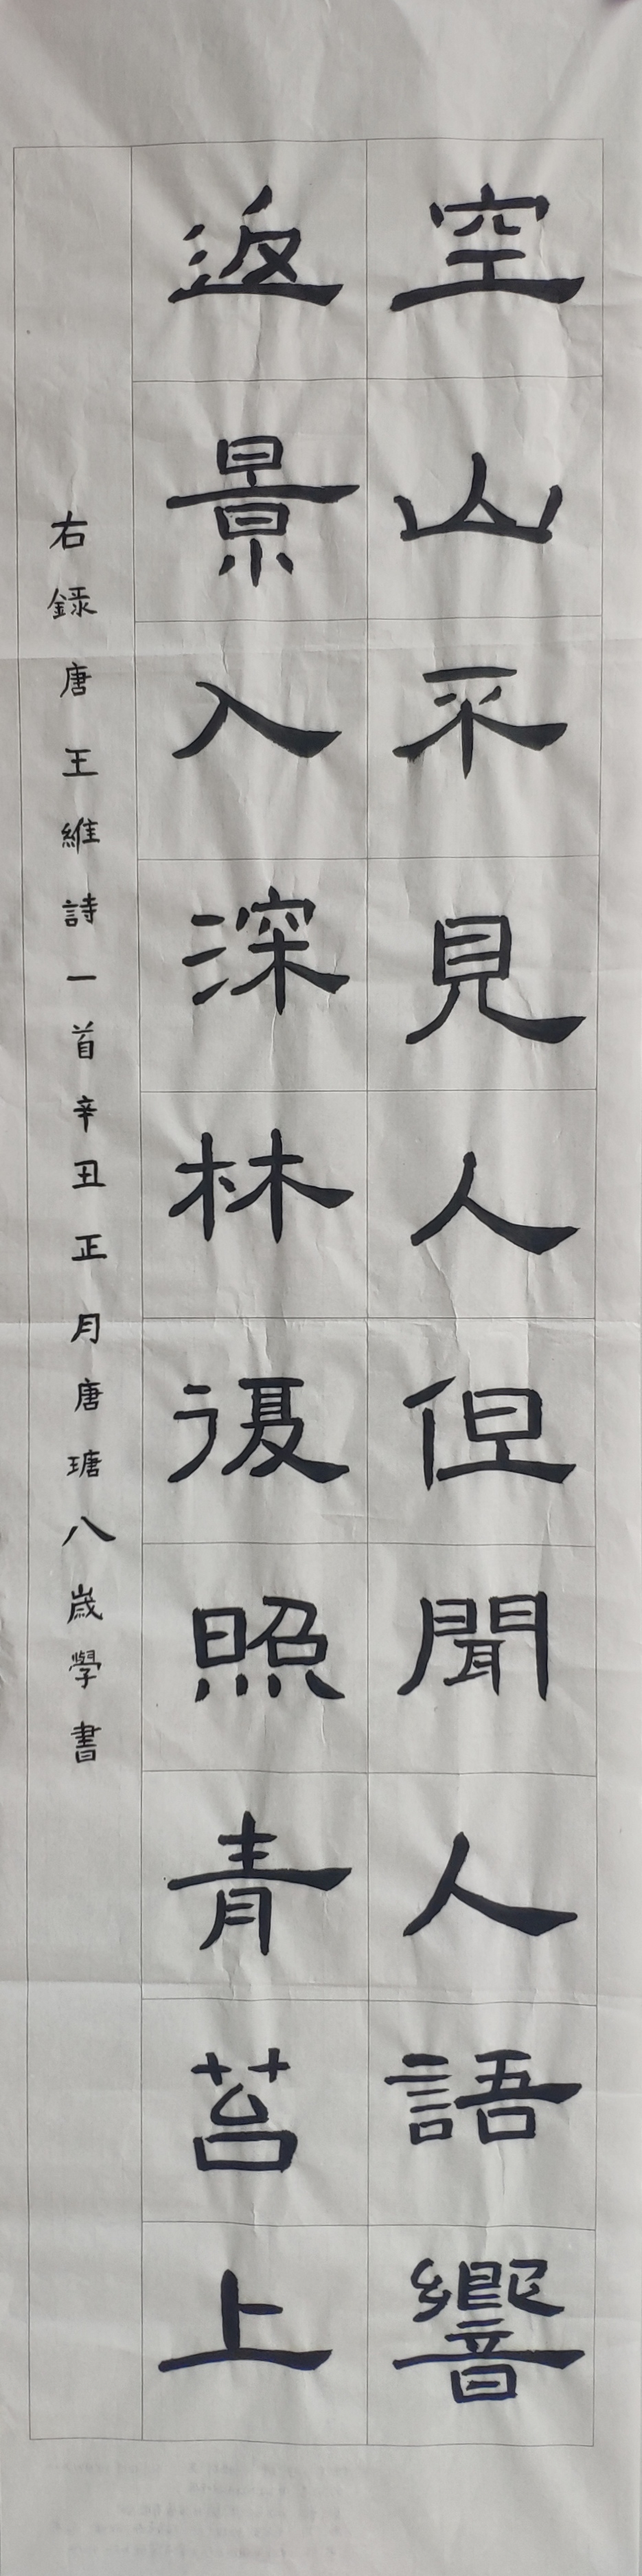 空山不見人但聞人語響
返景入深林復照青苔上
右錄唐王維詩一首辛丑正月唐瑭八歲學書